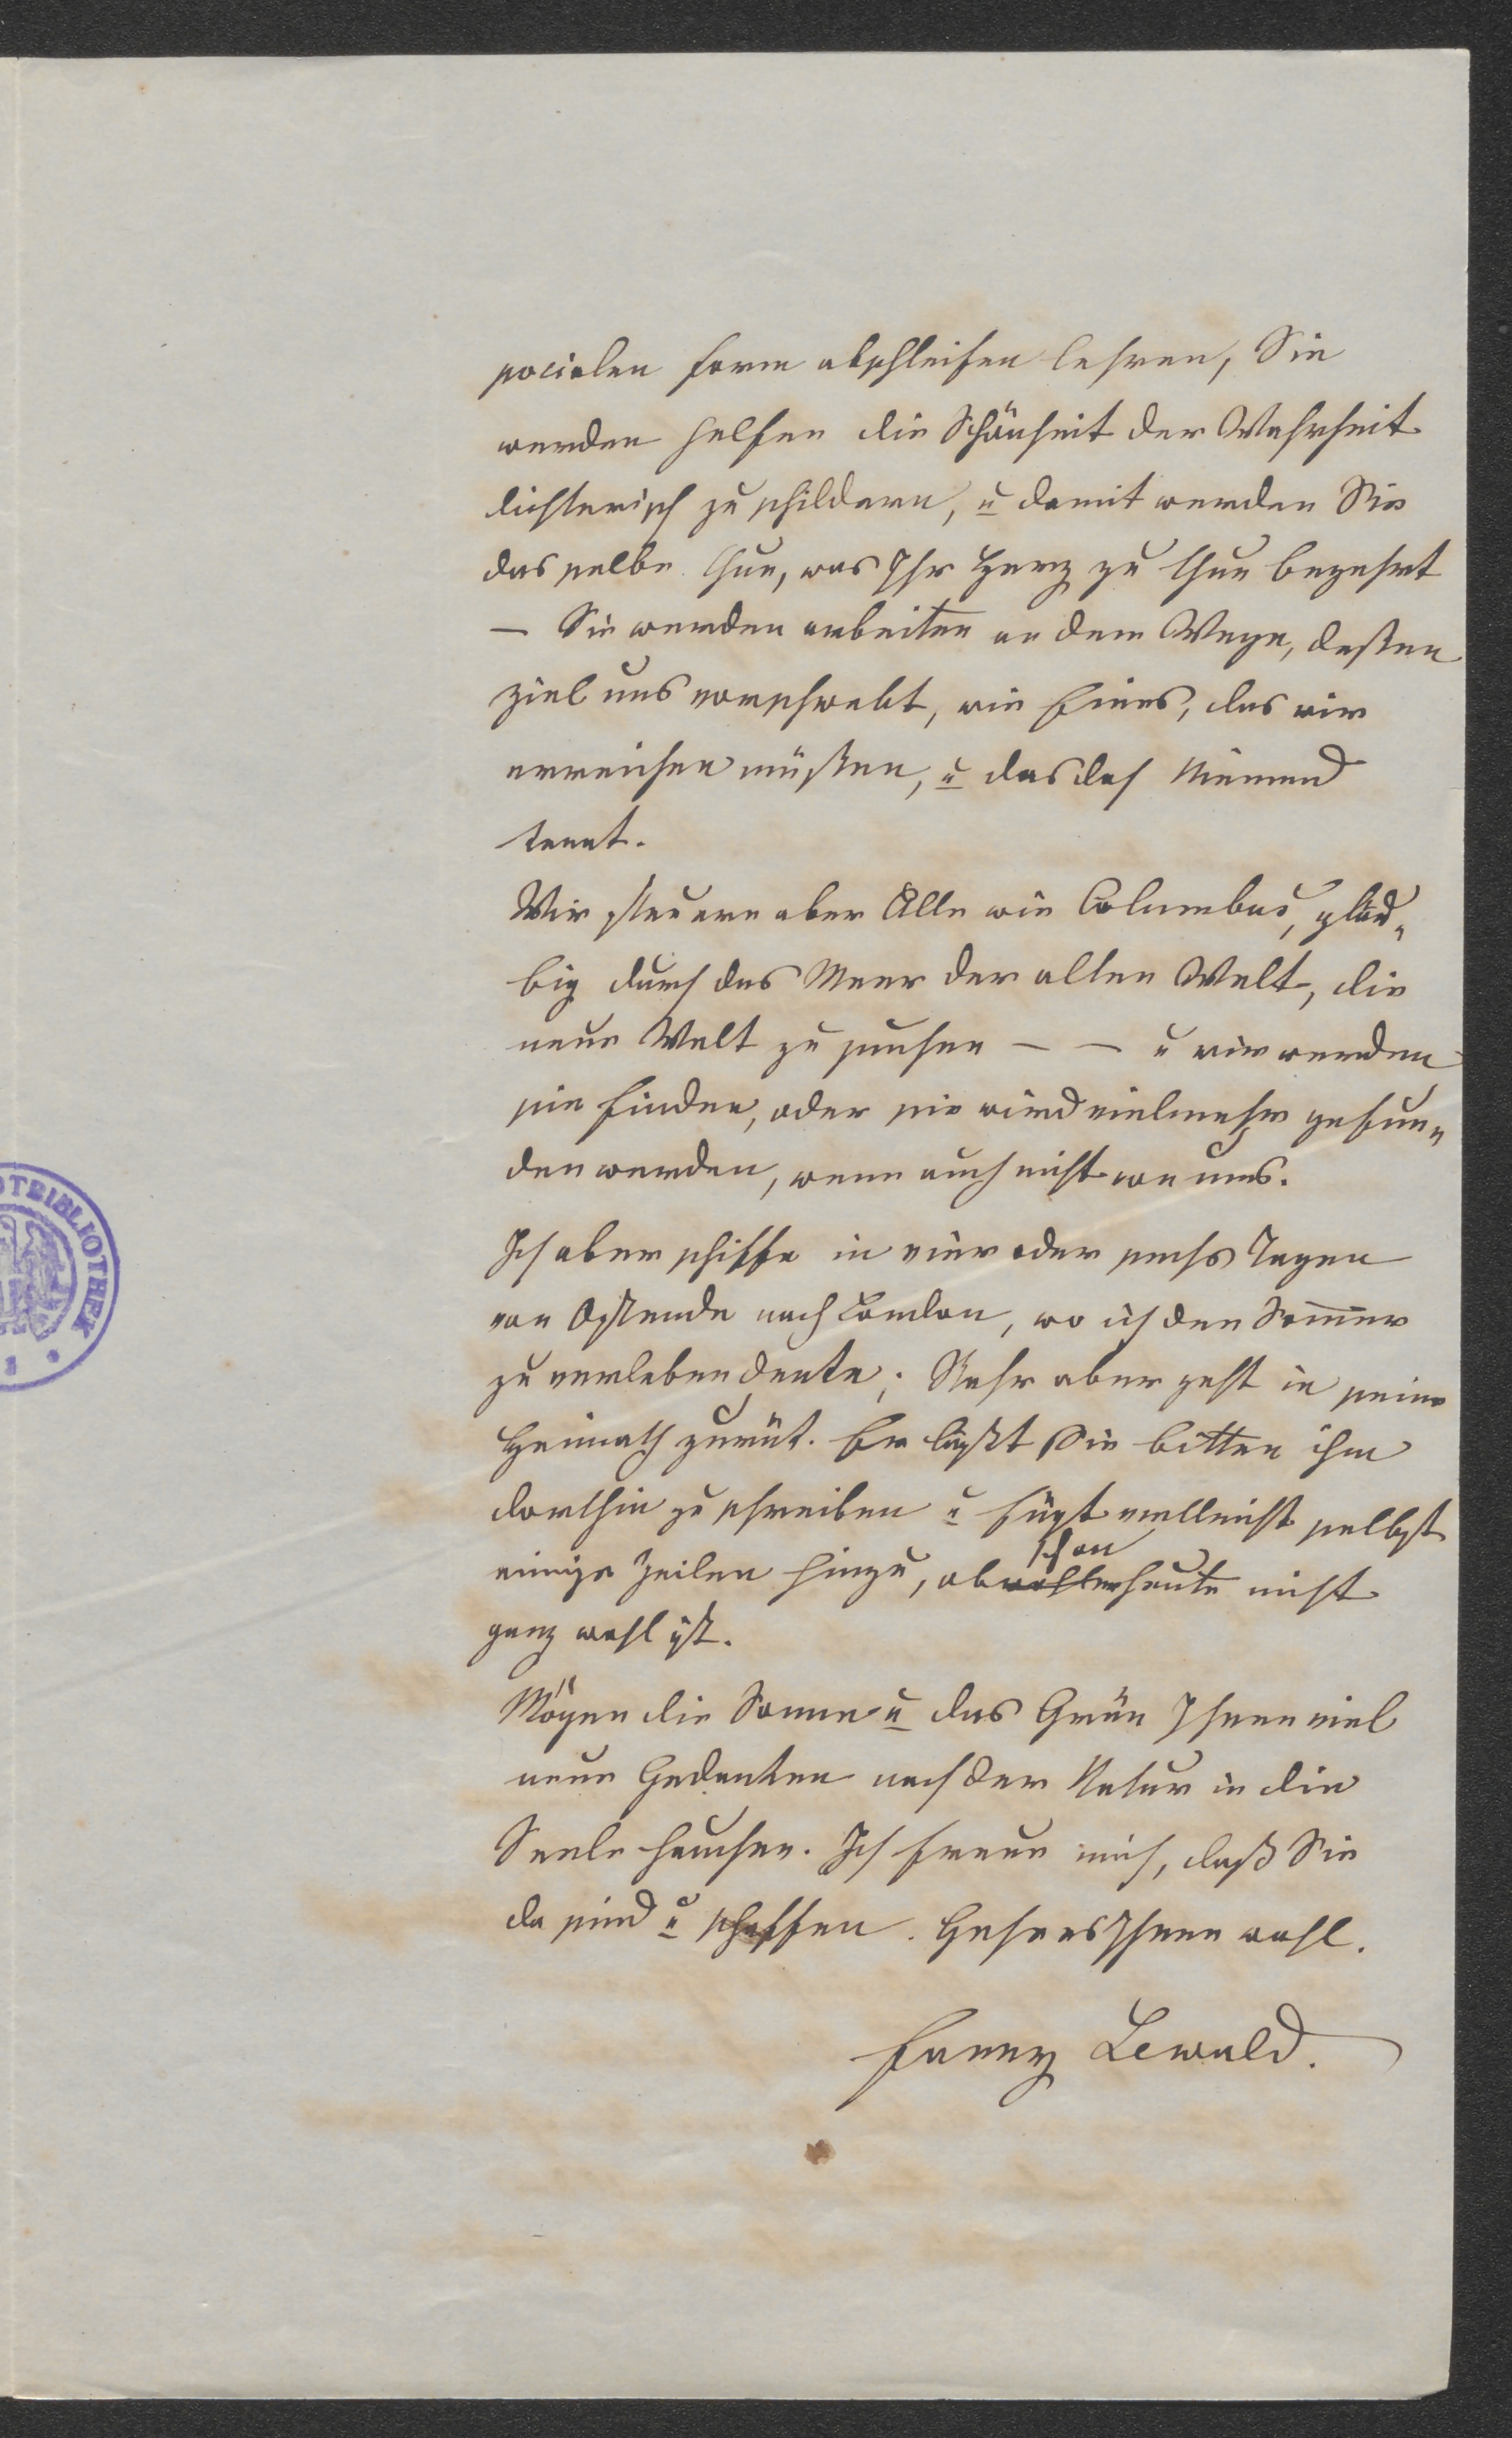 socialen Form abschleifen lehren, Sie
werden helfen die Schönheit der Wahrheit
dichterisch zu schildern, u damit werden Sie
das selbe thun, was Ihr Herz zu thun begehrt
— Sie werden arbeiten an dem Wege, deßen
Ziel uns vorschwebt, wie Eines, das wir
erreichen müßen, u das doch Niemand
kennt.
Wir steuern aber Alle wie Columbus, gläu„
big durch das Meer der alten Welt, die
neue Welt zu suchen — — u wir werden
sie finden, oder sie wird vielmehr gefun„
den werden, wenn auch nicht von uns.
Ich aber schiffe in vier oder sechs Tagen
von Ostende nach London, wo ich den Som̄er
zu verleben denke; Stahr aber geht in seine
Heimath zurük. Er läßt Sie bitten ihm
dorthin zu schreiben u fügt vielleicht selbst
schon
einige Zeilen hinzu, obwohl er heute nicht
ganz wohl ist.
Mögen die Sonne u das Grün Ihnen viel
neue Gedanken nach der Natur in die
Seele hauchen. Ich freue mich, daß Sie
da sind u schaffen. Gehe es Ihnen wohl.
Fanny Lewald.
OTBIBLIOTHEK